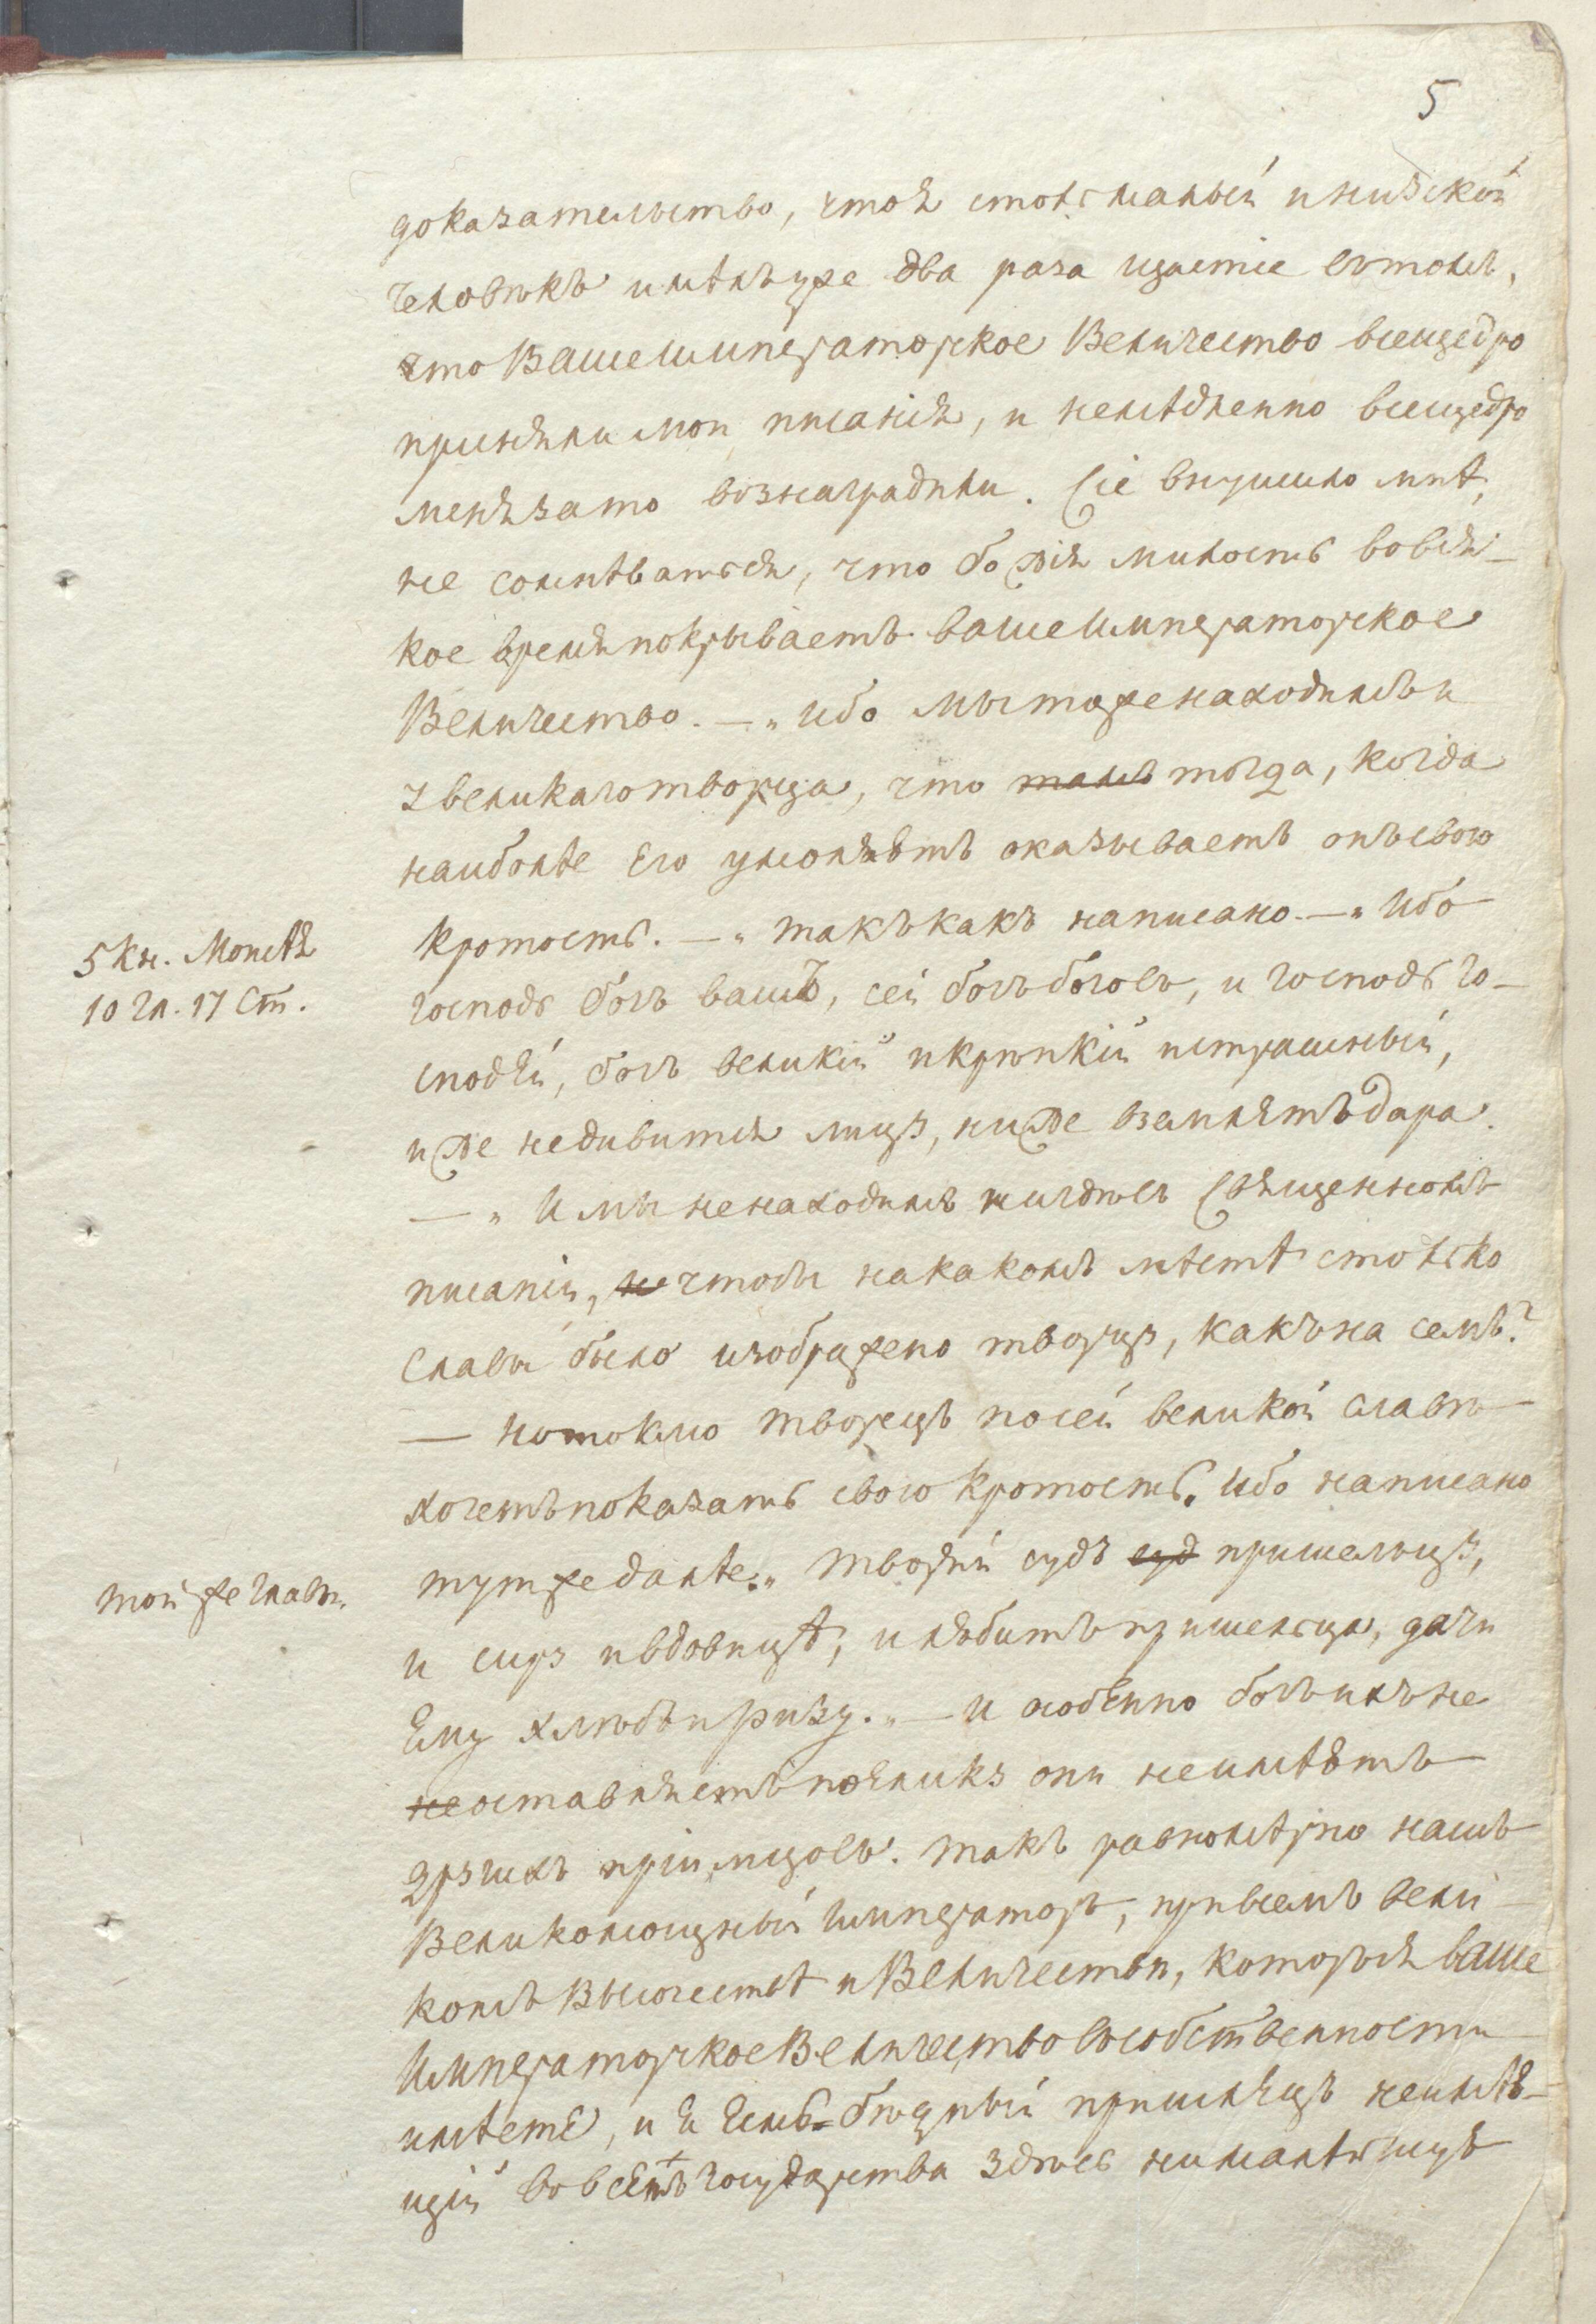 5
доказательство, что я столь малый и низской
человѣкъ имѣлъ уже два раза щастіе въ томъ,
что Ваше Императорское Величество всещедро
приняли мои писанія, и немѣдленно всещедро
меня за то вознаградили. Сіе внушило мнѣ,
не сомнѣваться, что божія милость во вся-
кое время покрываетъ Ваше Императорское
Величество. — „ Ибо мы тоже находимъ и
у великаго творца, что тамъ тогда, когда
наиболѣе Его умоляютъ оказываетъ онъ свою
кротость. — „ Такъ какъ написано. — „ Ибо
5 кн. Моисѣя
10 гл. 17 ст.
господь богъ вашъ, сей богъ боговъ, и господь го-
сподей, богъ великій и крѣпкій и страшный,
иже не дивится лицу, ниже вземлетъ дара.
— „ И мы не находимъ нигдѣ въ Священномъ
писаніи, не чтобы на какомъ мѣстѣ столько
славы было изображено творцу, какъ на семъ?
— но токмо творецъ по сей великой славѣ
хочетъ показать свою кротость. Ибо написано
тутже далѣе: „ творяй судъ суд пришельцу,
той же главы.
и сиру и вдовицѣ, и любитъ пришельца, дати
Ему хлѣбъ и ризу. „ — И особенно богъ ихъ не
не оставляетъ поелику они не имѣютъ
другихъ пріимцовъ. Такъ равномѣрно нашъ
Великомощный Императоръ, при всемъ вели-
комъ Высочествѣ и Величествѣ, которыя Ваше
Императорское Величество въ собственности
имѣете, и я Емь = бѣдный пришлецъ неимѣю-
щій во всемъ государства здѣсь ни малѣйшую